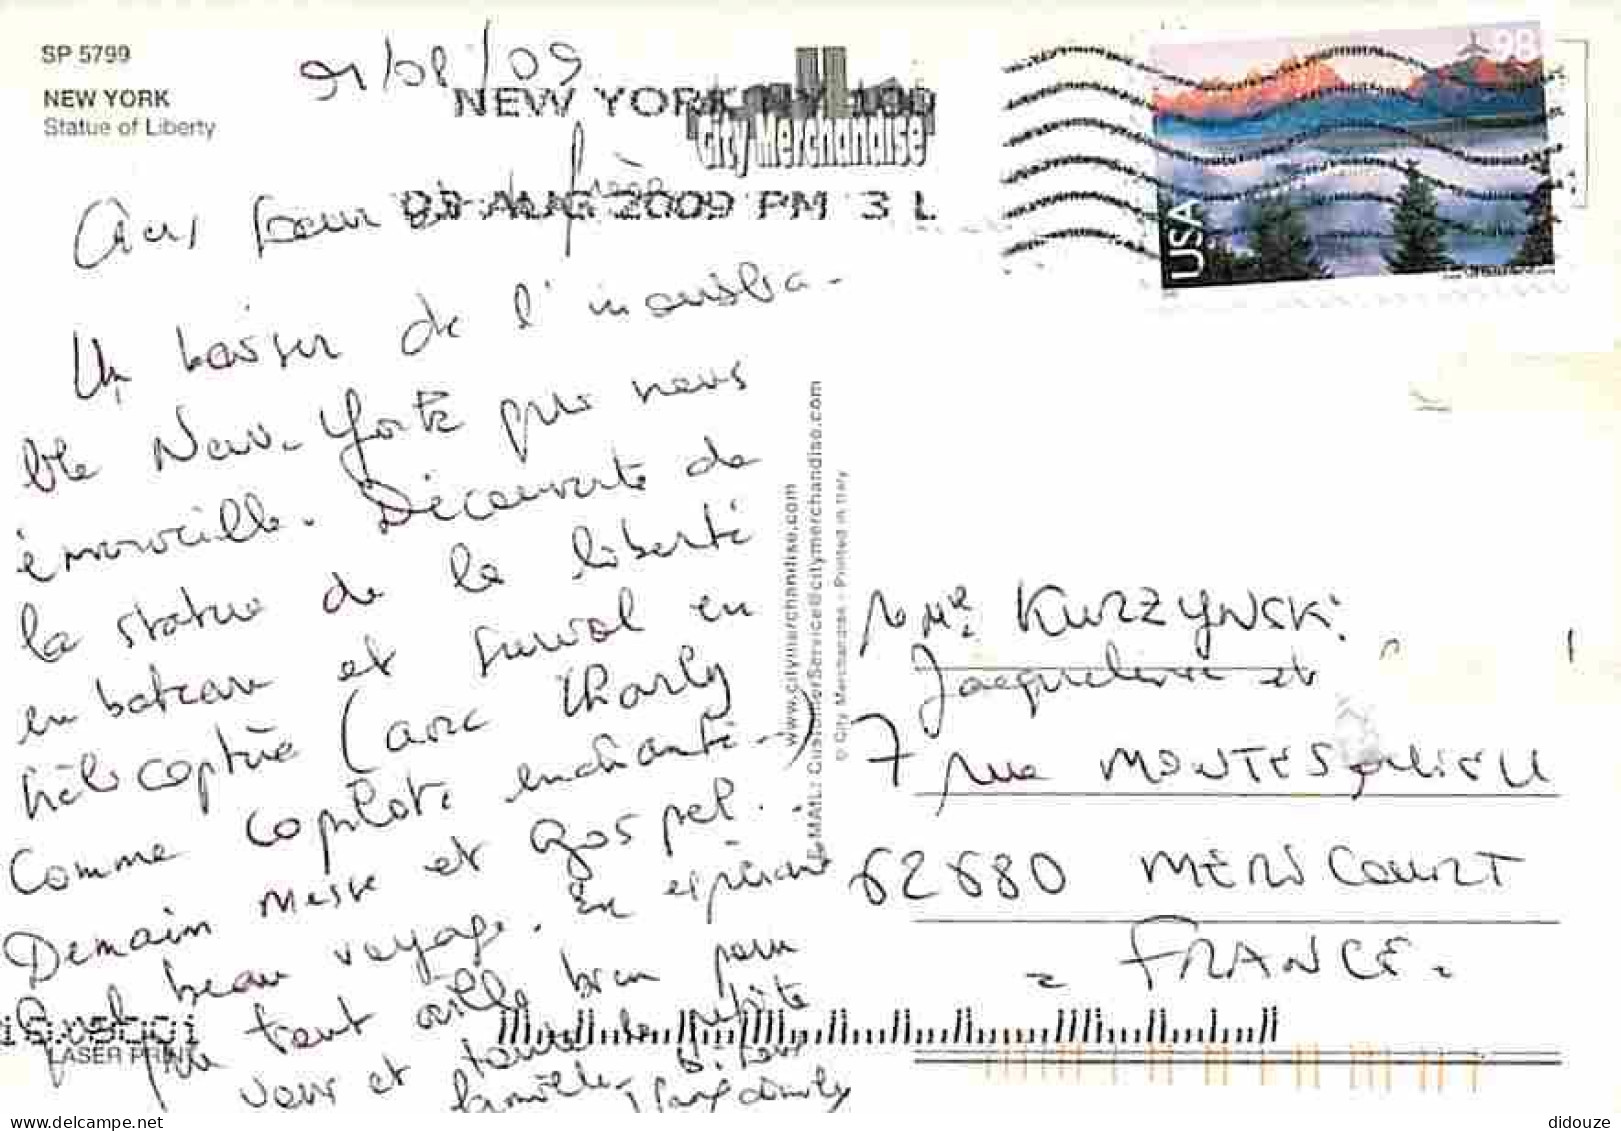 SP 5799
NEW YORK
Statue of Liberty
/08/09
NEW YORK NY 100
City Merchandise
03 AUG 2009 PM 3 L
98
USA
Un baiser de l'inoublia-
ble New-York qui nous
émerveille. Découverte de
la statue de la liberté
en bateau et survol en
hélicoptère (avec Charly
comme copilote enchanté-)
Demain messe et gospel.
Quel beau voyage. En espérant
que tout aille bien pour
vous et toute la petite
famille.
www.citymerchandise.com
E-MAIL: CustomerService@citymerchandise.com
© City Merchandise - Printed in Italy
KURZYNSKI
Jacqueline et
7 rue MONTESQUIEU
62680 MERICOURT
- FRANCE -
LASER PRINT
didouze